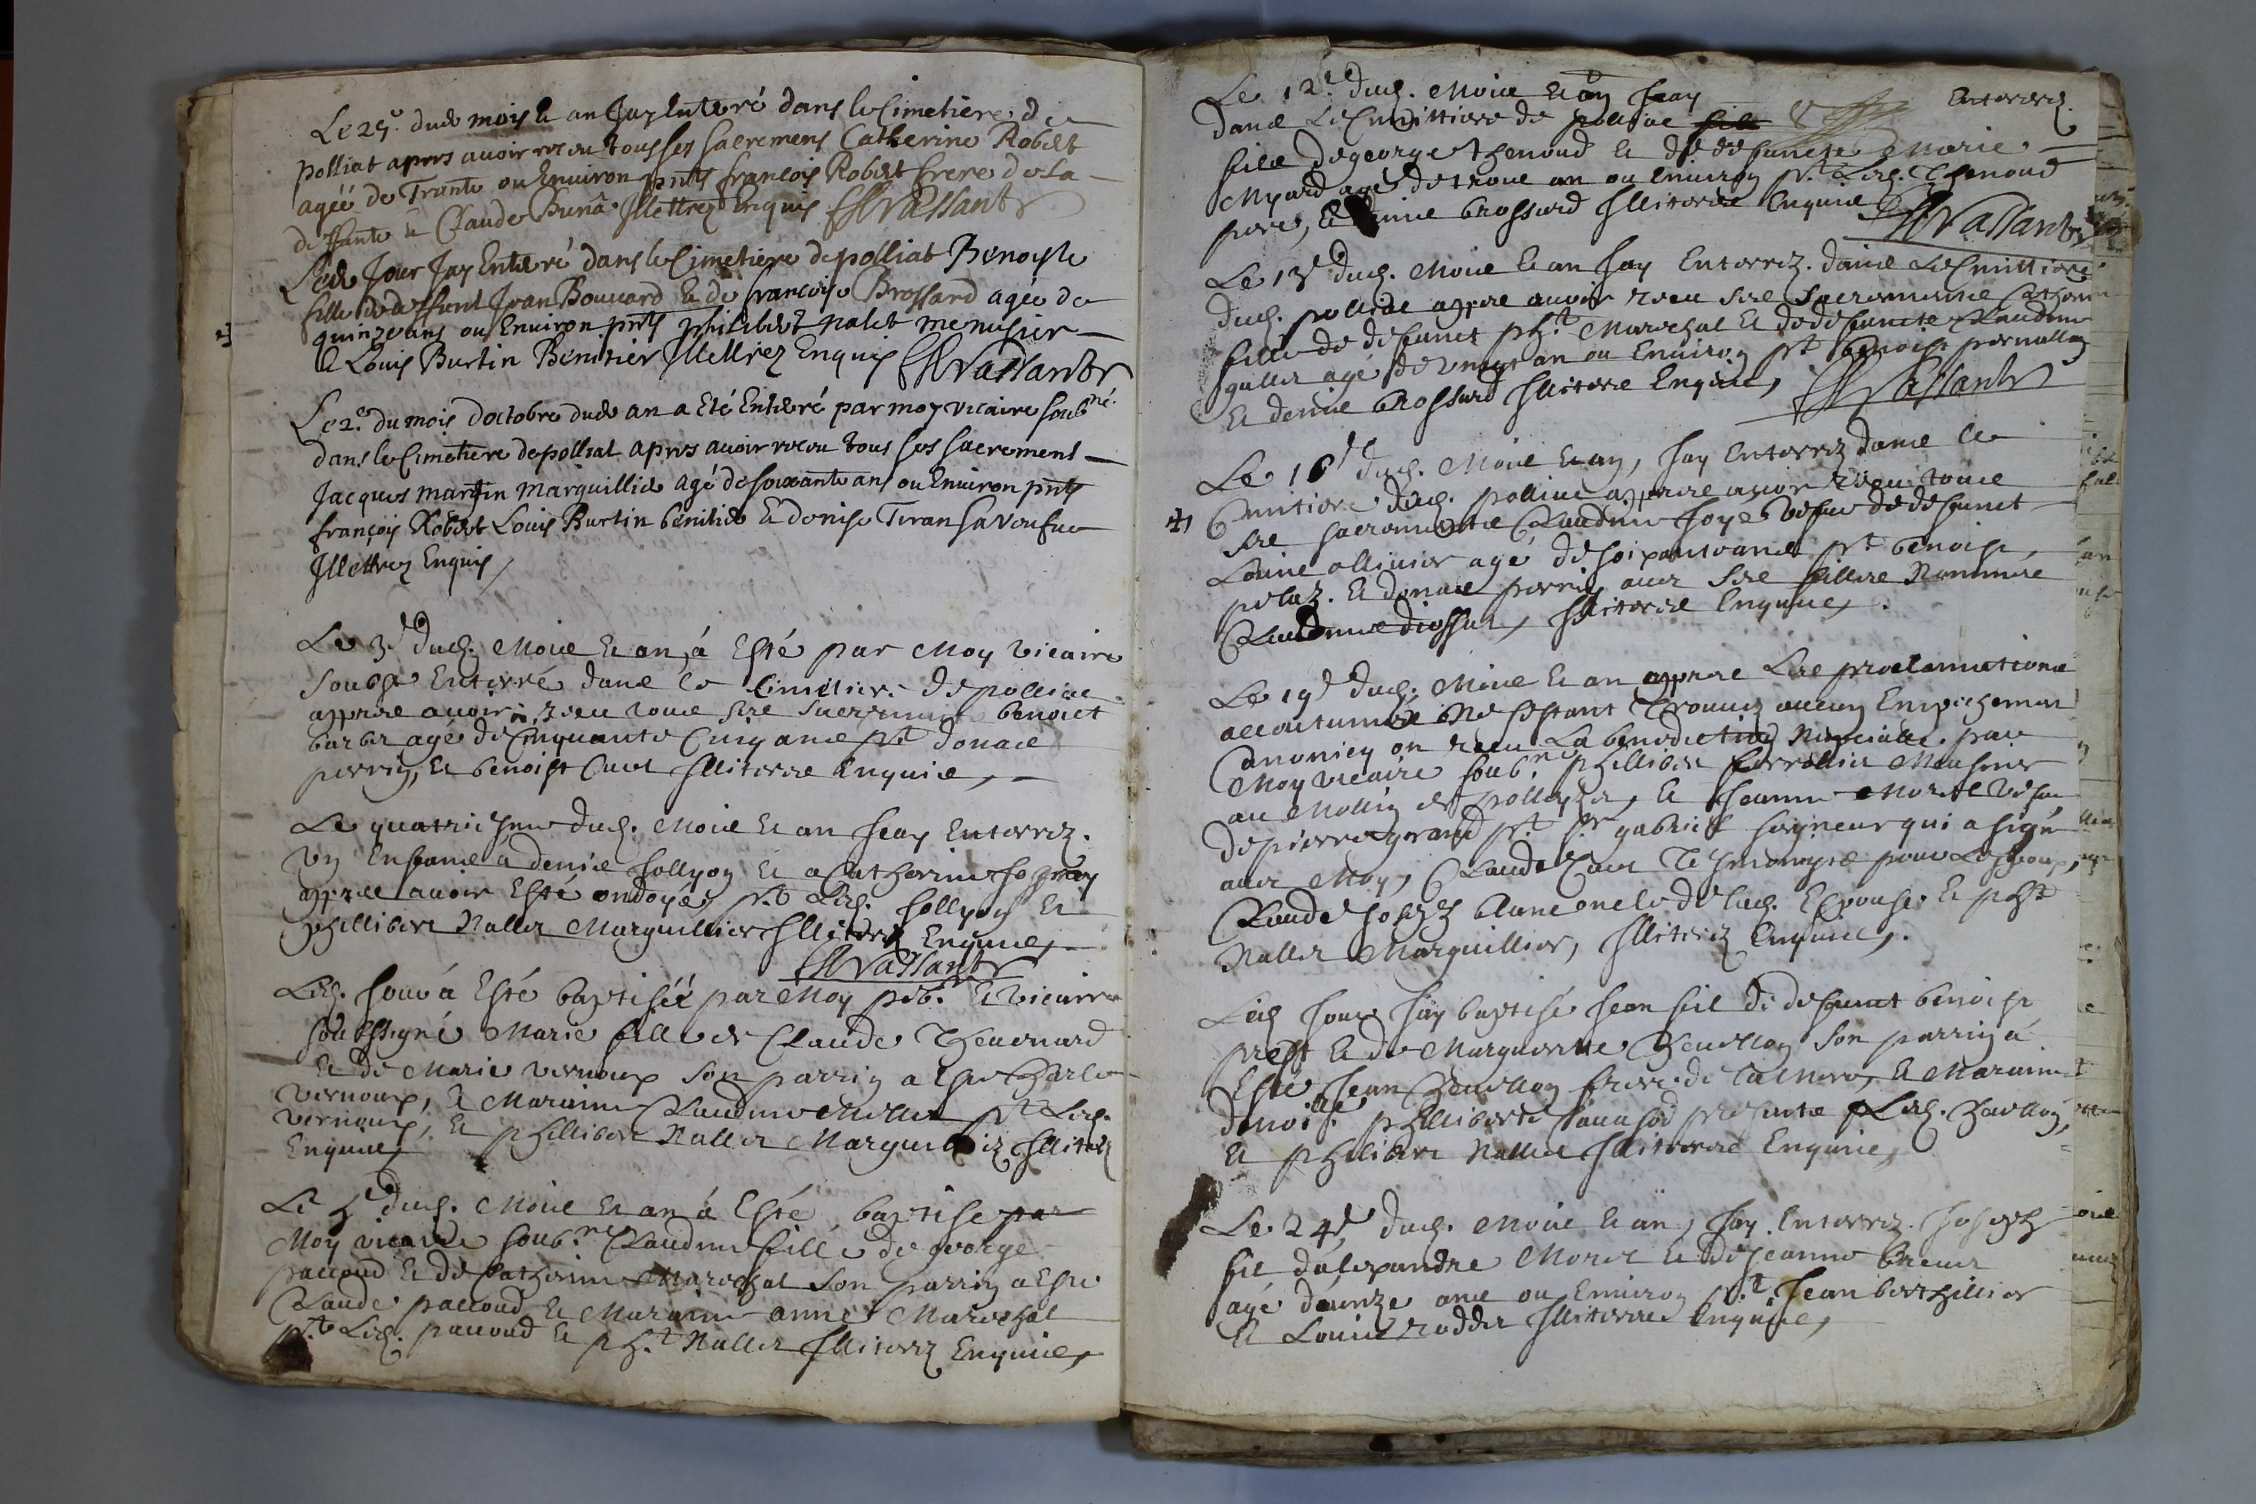 Le 25e. dud. mois & an Jay Enterré dans le Cimetiere de
polliat apres avoir receu tous ses sacremens Catherine Robert
agéé de Trante ou Environ pnts francois Robert frere de la
deffante & Claude Buna Illettrez Enquis Vassant
Led. Jour Jay Enterré dans le Cimetiere de polliat Benoyte
fille de deffunt Jean Bouuard & de francoise Brossard agée de
quinze ans ou Environ pnts philibert nalet menuisier
& Louis Burtin Benitier Illettrez Enquis Vassant
Le 2e. du mois doctobre dud. an a Eté Enterré par moy vicaire soubné.
dans le Cimetiere de polliat apres avoir receu tous ses sacrement
Jacques martin marguillier agé de soixante ans ou Environ pnts
françois Robert Louis Burtin benitier & denise Tiran sa veufue
Illettrez Enquis
Le 3e dud. Mois & an, á Esté par Moy vicaire
soubsé Enterré dans le Cimetiere de polliat
appres avoir receu tous ses sacremens benoict
barbet agé de Cinquante Cinq ans pnt donact
perrin, & benoist Cavet Illiterez Enquis,
Le quatriesme dud. Mois & an Jeay Enterrez.
vn Enfans a denis follyon & a Catherine
appres avoir Esté ondoyé, pnt Led. follyon &
phillibert Nallet Marguillier Illiterez Enquis,
Vassant
Led. Jour á Esté baptiséé par Moy pbr. & vicaire
soubssigné Marie fille de Claude Thevenard
& de Marie vernoux son parrin a Esté Charle
vernoux, & Maraine Claudine Millet pnt Led.
vernoux, & phillibert Nallet Marguillier Illiterez
Enquis,
Le 5e dud. Mois & an á Esté baptise par
Moy vicaire soub.né Claudine fille de george
paccoud & de Catherine Marechal son parrin a Esté
Claude paccoud & Maraine anne Marechal
pnt Led. paccoud & pht. Nallet Illiterez Enquis,
Le 12e. dud. Mois & an Jeay Enterrez.
dans Le Cimittiere de polliat
fils de george thenoud & de deffuncte Marie
Myard agé de trois an ou Environ pnt. Led. Thenoud
pere, & denis brossard Illiterez Enquis Vassant
Le 13e dud. Mois & an Jay Enterrez. dans Le Cimittiere
dud. polliat appres avoir receu ses sacremens Catherine
fille de deffunct pht. Marechal & de deffuncte Claudine
gallet agé de vingt an ou Environ pnt benoist pernollet
& denis brossard Illiterez Enquis, Vassant
Le 16e dud. Mois & an, Jay Enterrez dans le
Cimitiere dud. polliat appres avoir receu tous
ses sacremens Claudine Joye vefue de deffunct
Louis ollivier agé de soixante ans pnt benoist
pelaz. & donact perrin, avec ses filles Nommées
Claudine Illiterez Enquis,
Le 19e dud. Mois & an appres Les proclamations
accoutumées Ne sestant Trouvez aucun Empechemen
Canonicq on receu La benediction Nupcialle. par
Moy vicaire soub.né phillibert ferrollier Meusnier
au Mollin de & Jeanne Morel vefue
de pierre grand pnt. sr gabriel seigneur qui a signé
avec Moy, Claude Cavet Tesmoings pour Lespoux,
Claude Joseph blanc oncle de lad. Espouse. & pht
Nallet Marguillier, Illiterez Enquis,.
Led Jour Jay baptisé Jean fils de deffunct benoist
prost & de Marguerite Chevillon son parrin á
Esté Jean Chevillon frere de la Mere, & Maraine
demoille. phillibertte presente Led. Chevillon,
& phillibert Nallet Illiterez Enquis,
Le 24e dud. Mois & an, Jay Enterrez. Joseph
fils dalexandre Morel & de Jeanne
agé dounze ans ou Environ pnt. Jean berthillier
& Louis roddet Illiterez Enquis,